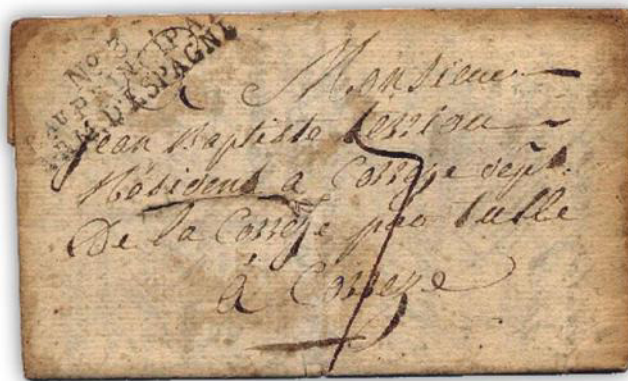 No 3
BAU PRINCIPAL
ARM. D'ESPAGNE
A Monsieur
Jean Baptiste
Résident a Correze dept.
De la Correze par tulle
à Correze
7